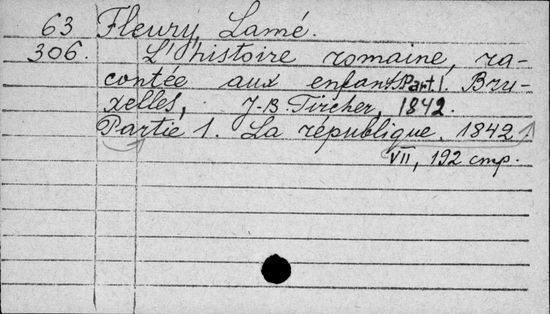 63 Fleury, Lamé.
306. L'histoire romaine, ra-
contée aux enfants. Part. 1. Bru-
xelles, J.-B. Tircher, 1842.
Partie 1. La république. 1842
VII, 192 стр.